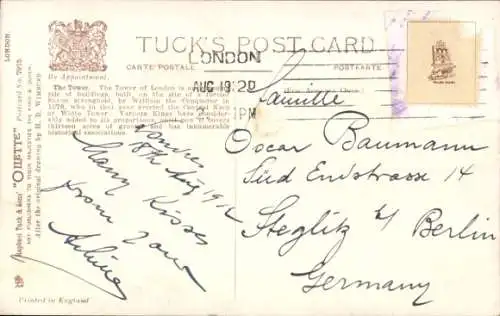 LONDON.
TUCK'S POST CARD
By Appointment.
CARTE POSTALE
POSTKARTE
LONDON
AUG 19 20
1 PM
The Tower. The Tower of London is an
of buildings, built, on the site of a
Saxon stronghold, by William the Conqueror in
1078, who in that year erected the
or White Tower. Various Kings have
added to its proportions, until
thirteen acres of ground and has innumerable
historical associations.
Raphael Tuck & Sons' "OILETTE" Postcard No. 7915
ART PUBLISHERS TO THEIR MAJESTIES THE KING & QUEEN.
After the original drawing by H. B. Wimbush
Printed in England
London
18th Aug
Many Kisses
from Your
Familie
Oscar Baumann
Süd Endstrasse 14
Steglitz b/ Berlin
Germany